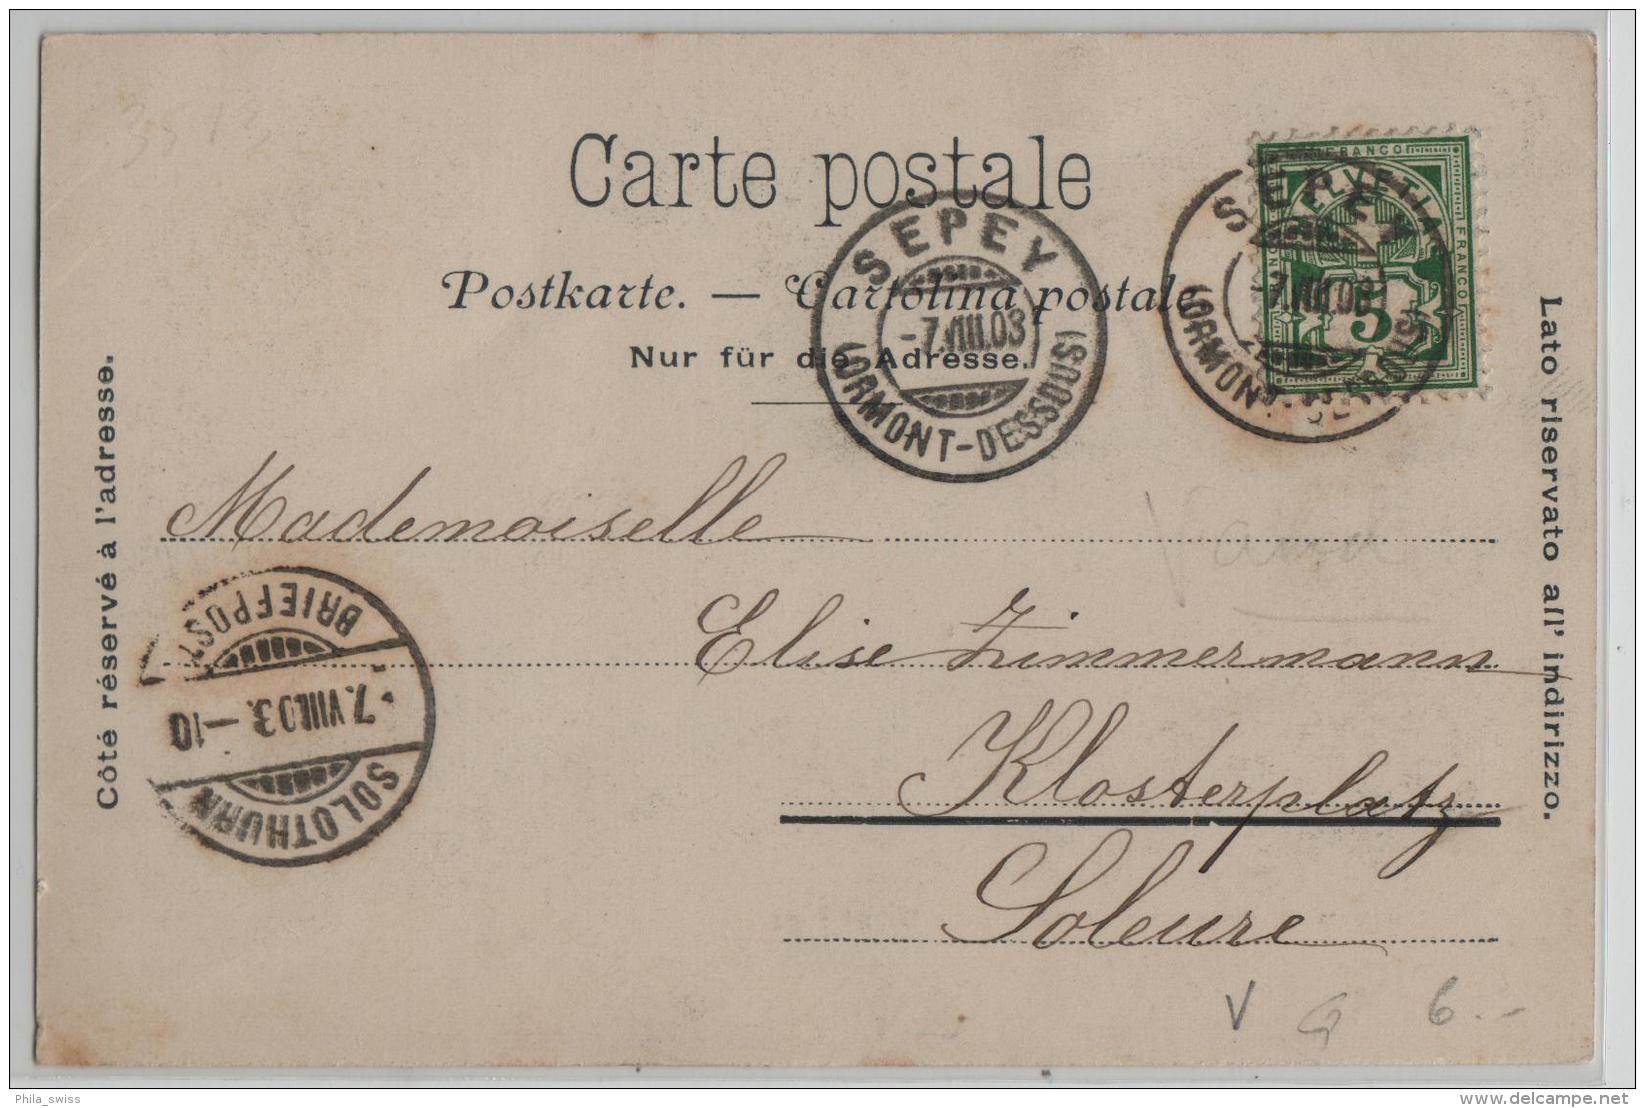 Carte postale
Postkarte. — Cartolina postale
Nur für die Adresse.
SEPEY
-7.VIII.03
(ORMONT-DESSOUS)
FRANCO
HELVETIA
FRANCO
5
SEPEY
-7.VIII.03
(ORMONT-DESSOUS)
Côté réservé à l'adresse.
Lato riservato all' indirizzo.
Mademoiselle
Elise Zimmermann
Klosterplatz
Soleure
SOLOTHURN
7.VIII.03.-10
BRIEFPOST
V
6.-
Phila_swiss
delcampe.net